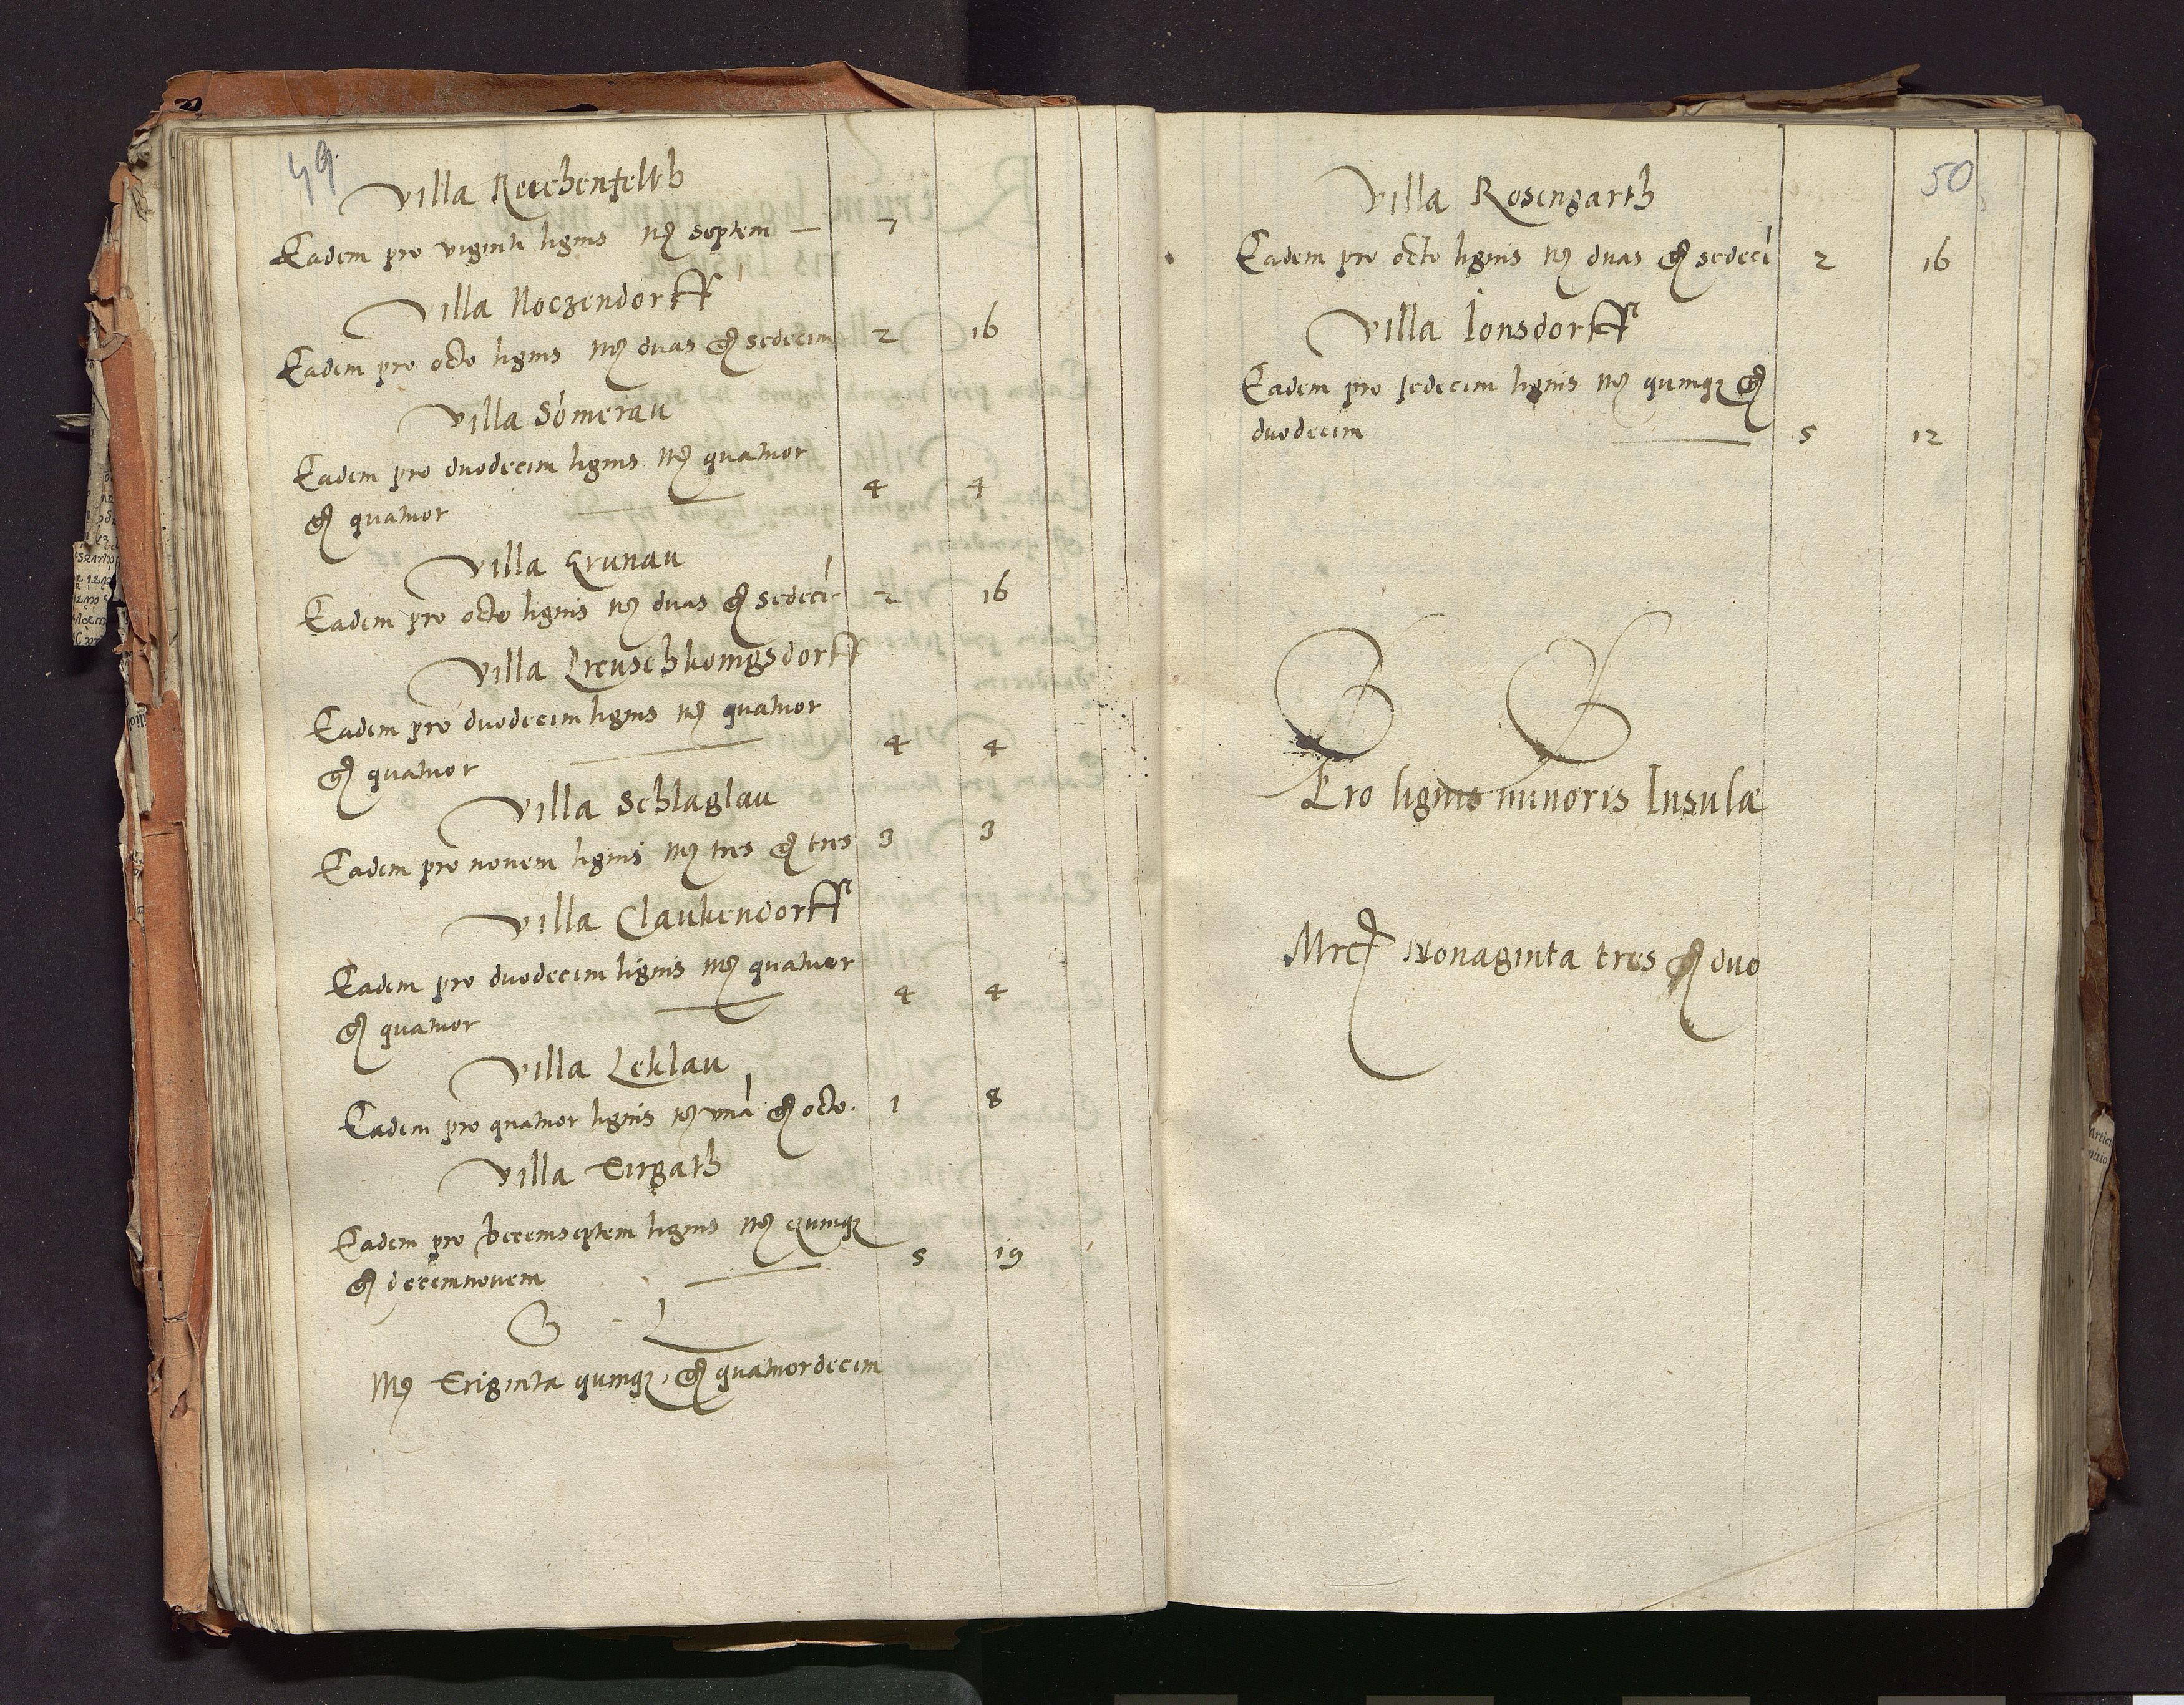 49
Villa Reichenfelth
Eadem pro viginti lignis mr septem — 7
Villa Noczendorff
Eadem pro octo lignis mr duas gr sedecim 2 16
Villa Somerau
Eadem pro duodecim lignis mr quatuor
gr quatuor 4 4
Villa Grunau
Eadem pro octo lignis mr duas gr sedeci 2 16
Villa Preuschkonigsdorff
Eadem pro duodecim lignis mr quatuor
gr quatuor 4 4
Villa Schlaglau
Eadem pro novem lignis mr tres gr tres 3 3
Villa Claukendorff
Eadem pro duodecim lignis mr quatuor
gr quatuor 4 4
Villa Leklau
Eadem pro quatuor lignis mr una gr octo. 1 8
Villa Tirgath
Eadem pro decemseptem lignis mr quinqz
gr decemnovem 5 19
Mr Triginta quinqz, gr quatuordecim
50
Villa Rosengarth
Eadem pro octo lignis mr duas gr sedeci 2 16
Villa Ionsdorff
Eadem pro sedecim lignis mr quinqz gr
duodecim 5 12
Pro lignis minoris Insulæ
Mrc Nonaginta tres gr duo